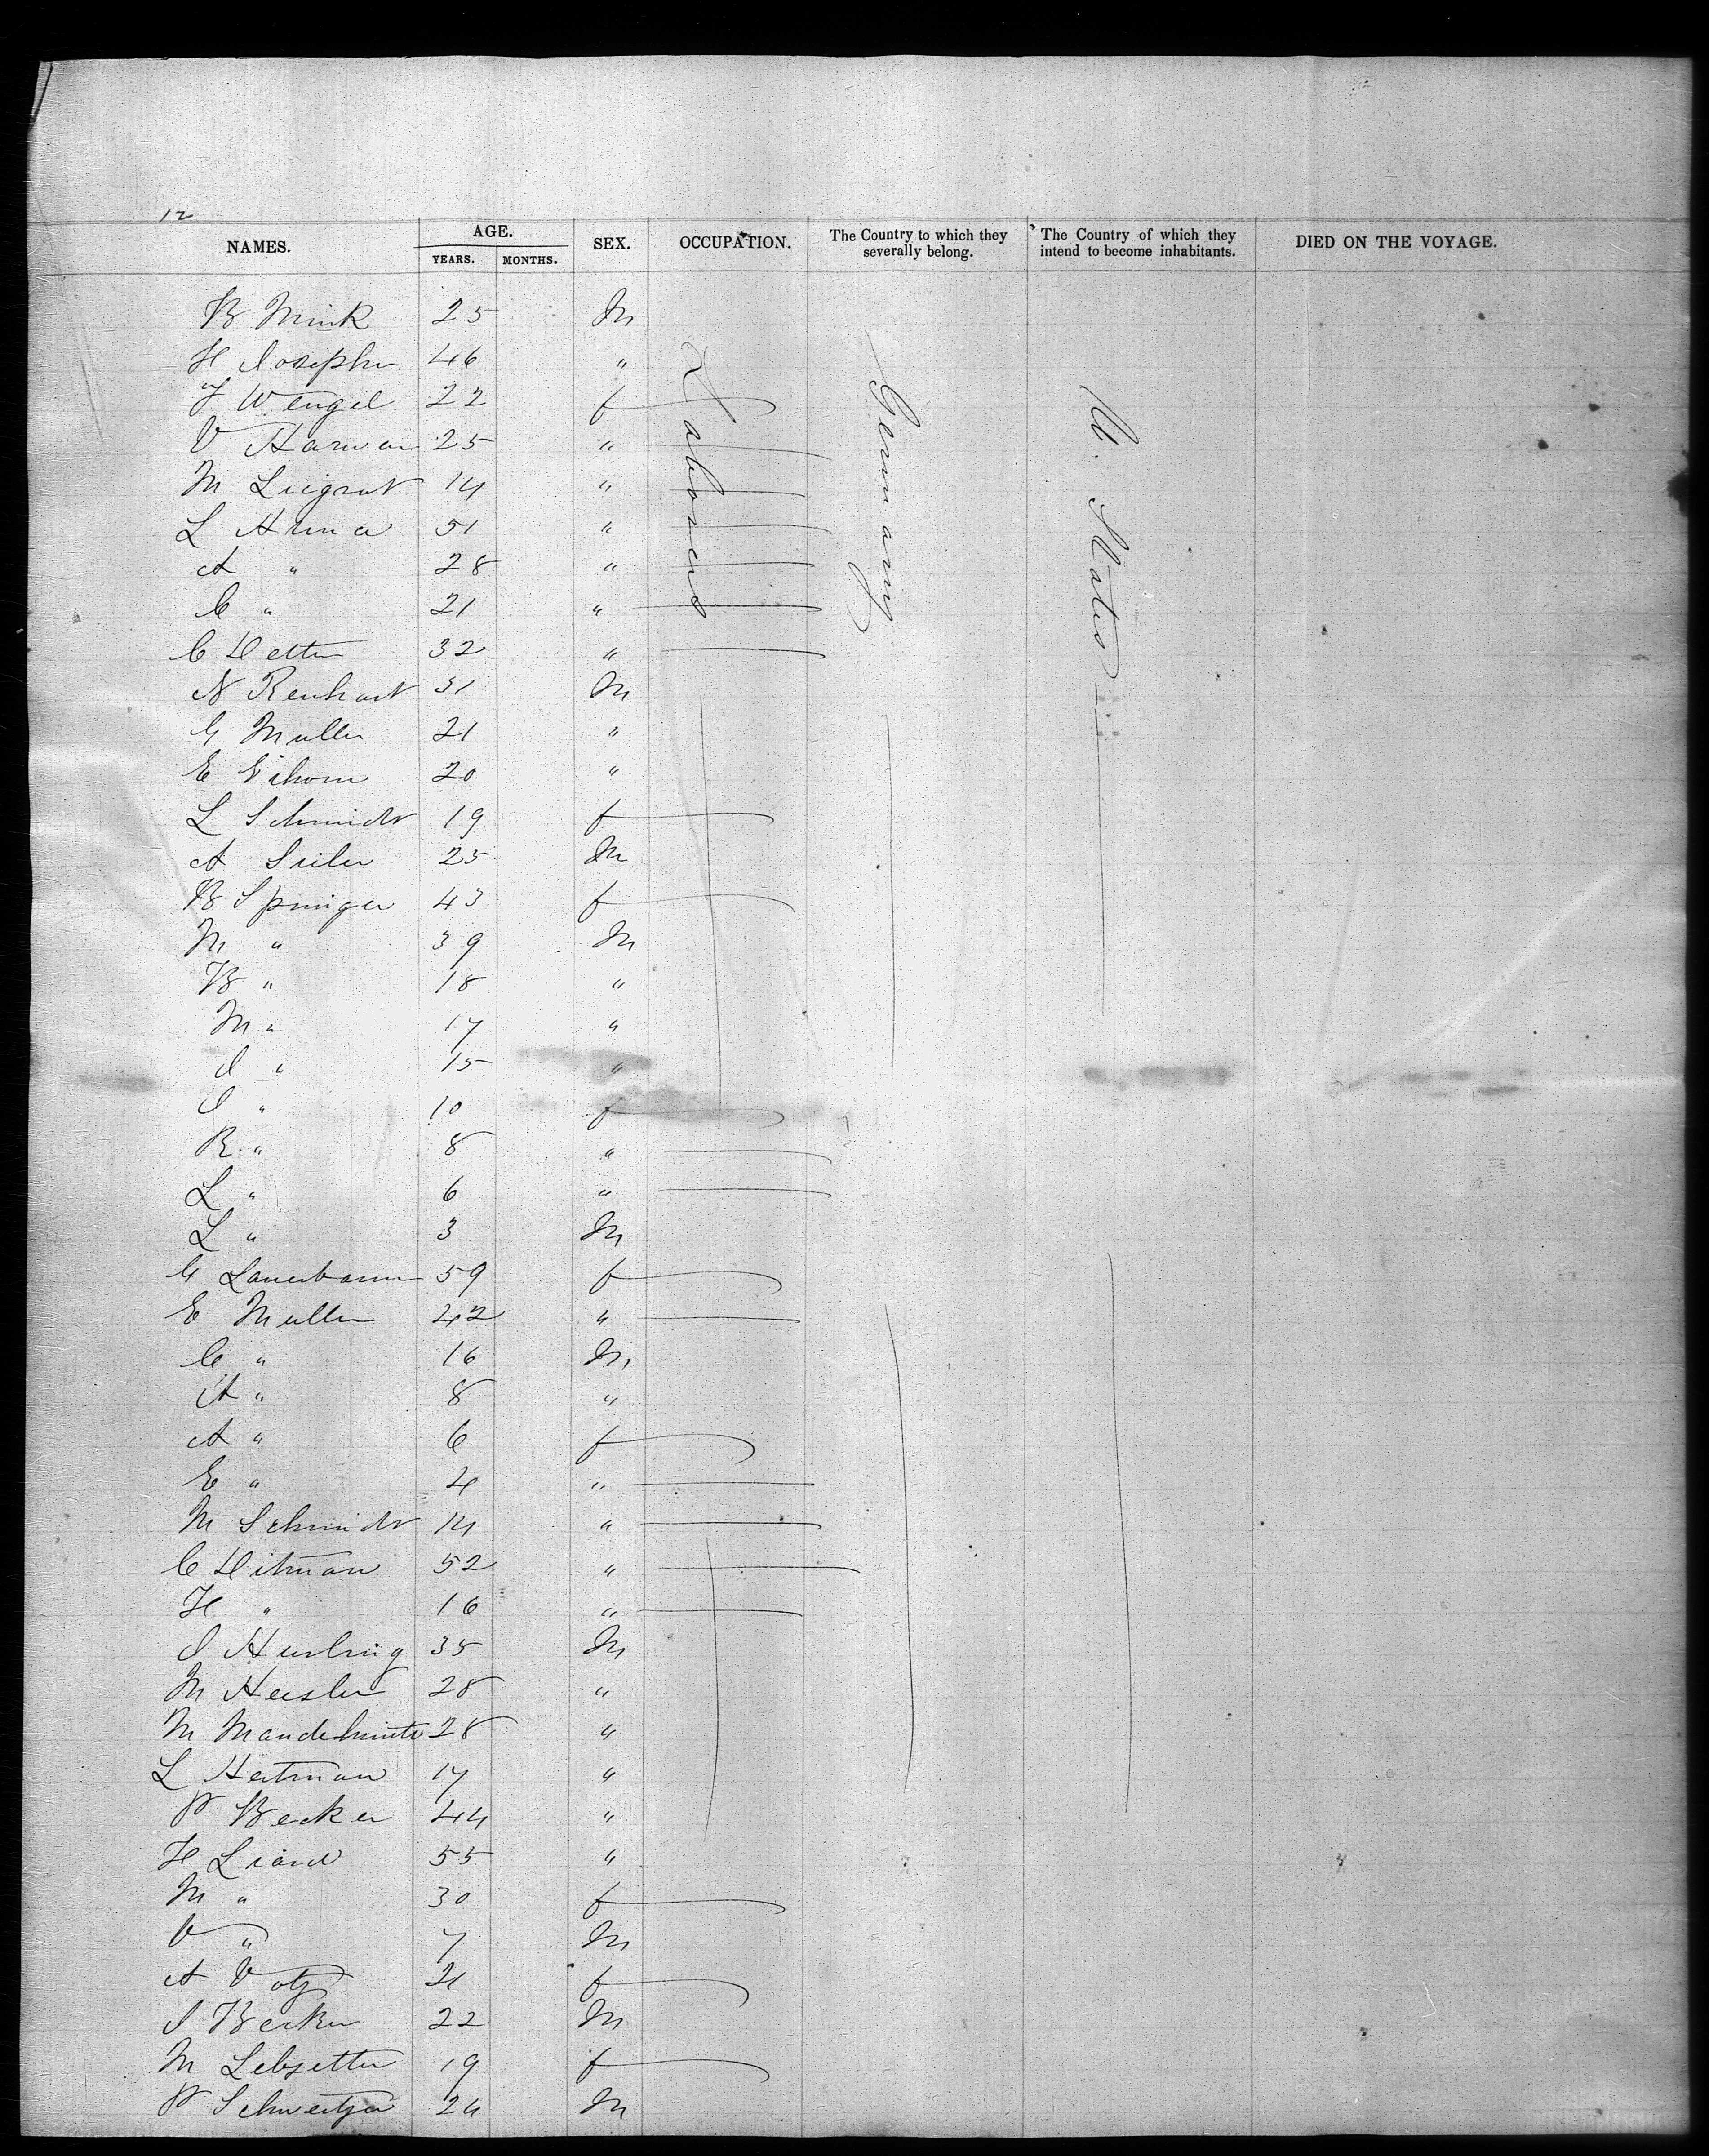 12
NAMES. AGE. SEX. OCCUPATION. The Country to which they severally belong. The Country of which they intend to become inhabitants. DIED ON THE VOYAGE.
YEARS. MONTHS.
B Mink 25 M
H Josephu 46 "
J Wengel 22 f
V Harman 25 "
M 14 "
L Anna 51 "
A " 28 "
C " 21 "
C Detter 32 "
Laborers Germany U. States
N Renhart 31 M
G Muller 21 "
E Eihorn 20 "
L Schmidt 19 f
A Seiler 25 M
B Springer 43 f
M " 39 M
B " 18 "
M " 17 "
J " 15 "
J " 10 f
R " 8 "
L " 6 "
L " 3 M
G Lauerbaum 59 f
E Muller 42 "
C " 16 M
A " 8 "
A " 6 f
E " 4 "
M Schmidt 14 "
C Ditman 52 "
H " 16 "
J 35 M
M Hesler 28 "
M 28 "
L Hartman 17 "
P Becker 44 "
H 55 "
M " 30 f
V " 7 M
A Votz 21 f
J Becker 22 M
M Lebzetter 19 f
P Schweitzer 24 M